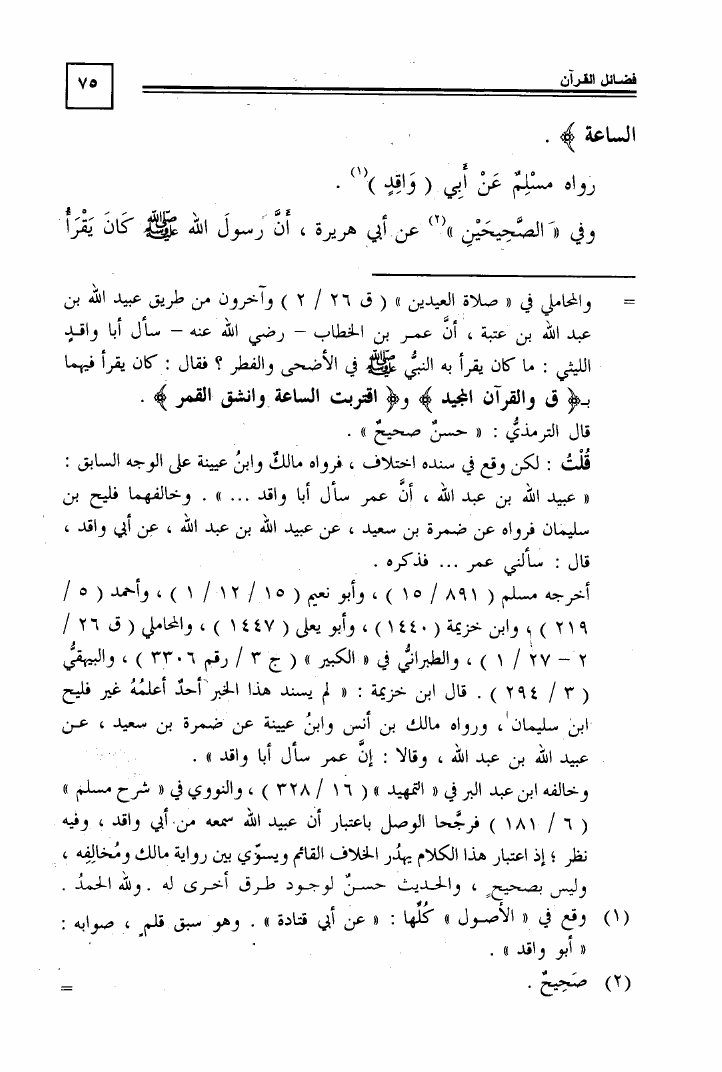 فضائل القرآن
٧٥
الساعة ﴾ .
رواه مسْلِمٌ عَنْ أَبِي ( وَاقِدٍ )(١) .
وفي « الصَّحِيحَيْنِ »(٢) عن أبي هريرة ، أَنَّ رَسولَ الله ﷺ كَانَ يَقْرَأُ
= والمحاملي في « صلاة العيدين » ( ق ٢٦ / ٢ ) وآخرون من طريق عبيد الله بن
عبد الله بن عتبة ، أنَّ عمر بن الخطاب – رضي الله عنه – سأل أبا واقد
الليثي : ما كان يقرأ به النبيُّ ﷺ في الأضحى والفطر ؟ فقال : كان يقرأ فيهما
بـ﴿ ق والقرآن المجيد ﴾ و﴿ اقتربت الساعة وانشق القمر ﴾ .
قال الترمذيُّ : « حسنٌ صحيحٌ » .
قُلْتُ : لكن وقع في سنده اختلاف ، فرواه مالكٌ وابنُ عيينة على الوجه السابق :
« عبيد الله بن عبد الله ، أنَّ عمر سأل أبا واقد ... » . وخالفهما فليح بن
سليمان فرواه عن ضمرة بن سعيد ، عن عبيد الله بن عبد الله ، عن أبي واقد ،
قال : سألني عمر ... فذكره .
أخرجه مسلم ( ٨٩١ / ١٥ ) ، وأبو نعيم ( ١٥ / ١٢ / ١ ) ، وأحمد ( ٥ /
٢١٩ ) ، وابن خزيمة ( ١٤٤٠ ) ، وأبو يعلى ( ١٤٤٧ ) ، والمحاملي ( ق ٢٦ /
٢ – ٢٧ / ١ ) ، والطبرانيُّ في « الكبير » ( ج ٣ / رقم ٣٣٠٦ ) ، والبيهقيُّ
( ٣ / ٢٩٤ ) . قال ابن خزيمة : « لم يسند هذا الخبر أحدٌ أعلمُهُ غير فليح
ابن سليمان ، ورواه مالك بن أنس وابنُ عيينة عن ضمرة بن سعيد ، عن
عبيد الله بن عبد الله ، وقالا : إنَّ عمر سأل أبا واقد » .
وخالفه ابن عبد البر في « التمهيد » ( ١٦ / ٣٢٨ ) ، والنووي في « شرح مسلم »
( ٦ / ١٨١ ) فرجَّحا الوصل باعتبار أن عبيد الله سمعه من أبي واقد ، وفيه
نظر ؛ إذ اعتبار هذا الكلام يهدُر الخلاف القائم ويسوّي بين رواية مالك ومُخالِفِه ،
وليس بصحيحٍ ، والحديث حسنٌ لوجود طرق أخرى له . ولله الحمدُ .
(١) وقع في « الأصول » كُلِّها : « عن أبي قتادة » . وهو سبق قلمٍ ، صوابه :
« أبو واقد » .
(٢) صَحِيحٌ .
=